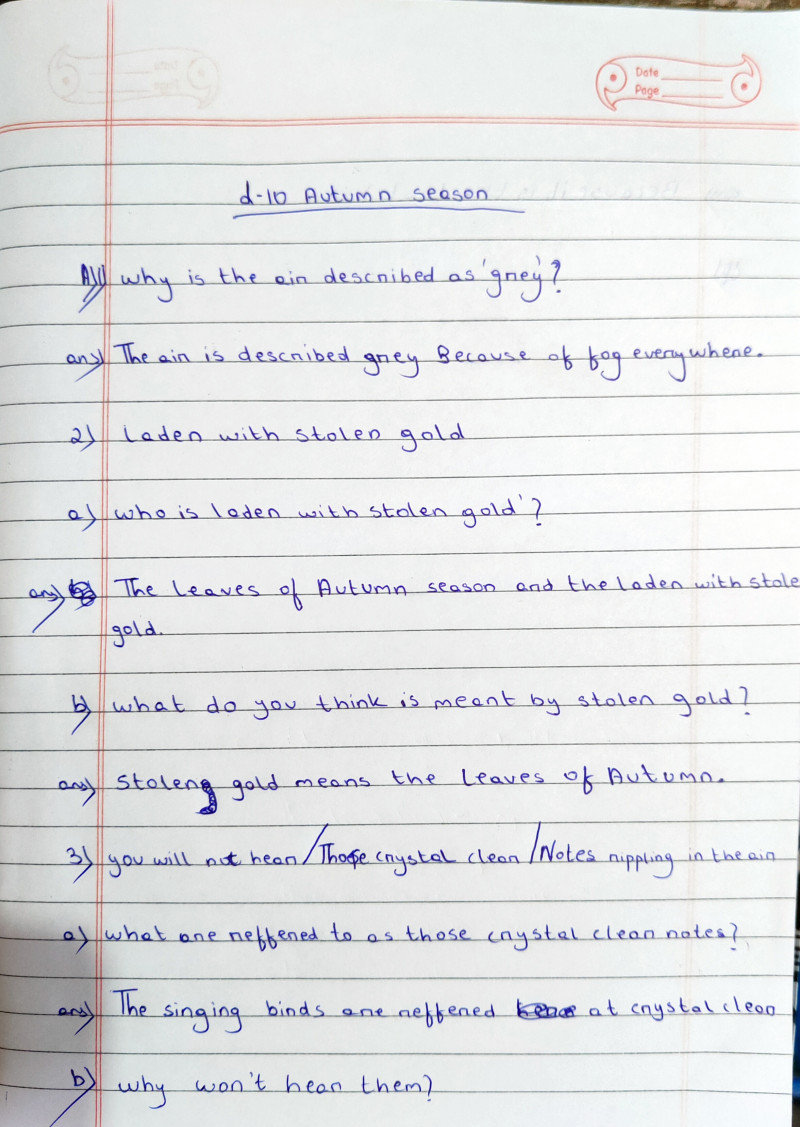 Date
Page
d-10 Autumn season
A)1) why is the air described as 'grey'?
ans) The air is described grey Because of fog everywhere.
2) laden with stolen gold
a) who is laden with stolen gold'?
ans) The leaves of Autumn season and the laden with stole
gold.
b) what do you think is meant by stolen gold?
ans) stolen gold means the leaves of Autumn.
3) you will not hear/Those crystal clear/Notes rippling in the air
a) what are reffered to as those crystal clear notes?
ans) The singing birds are reffered at crystal clear
b) why won't hear them?